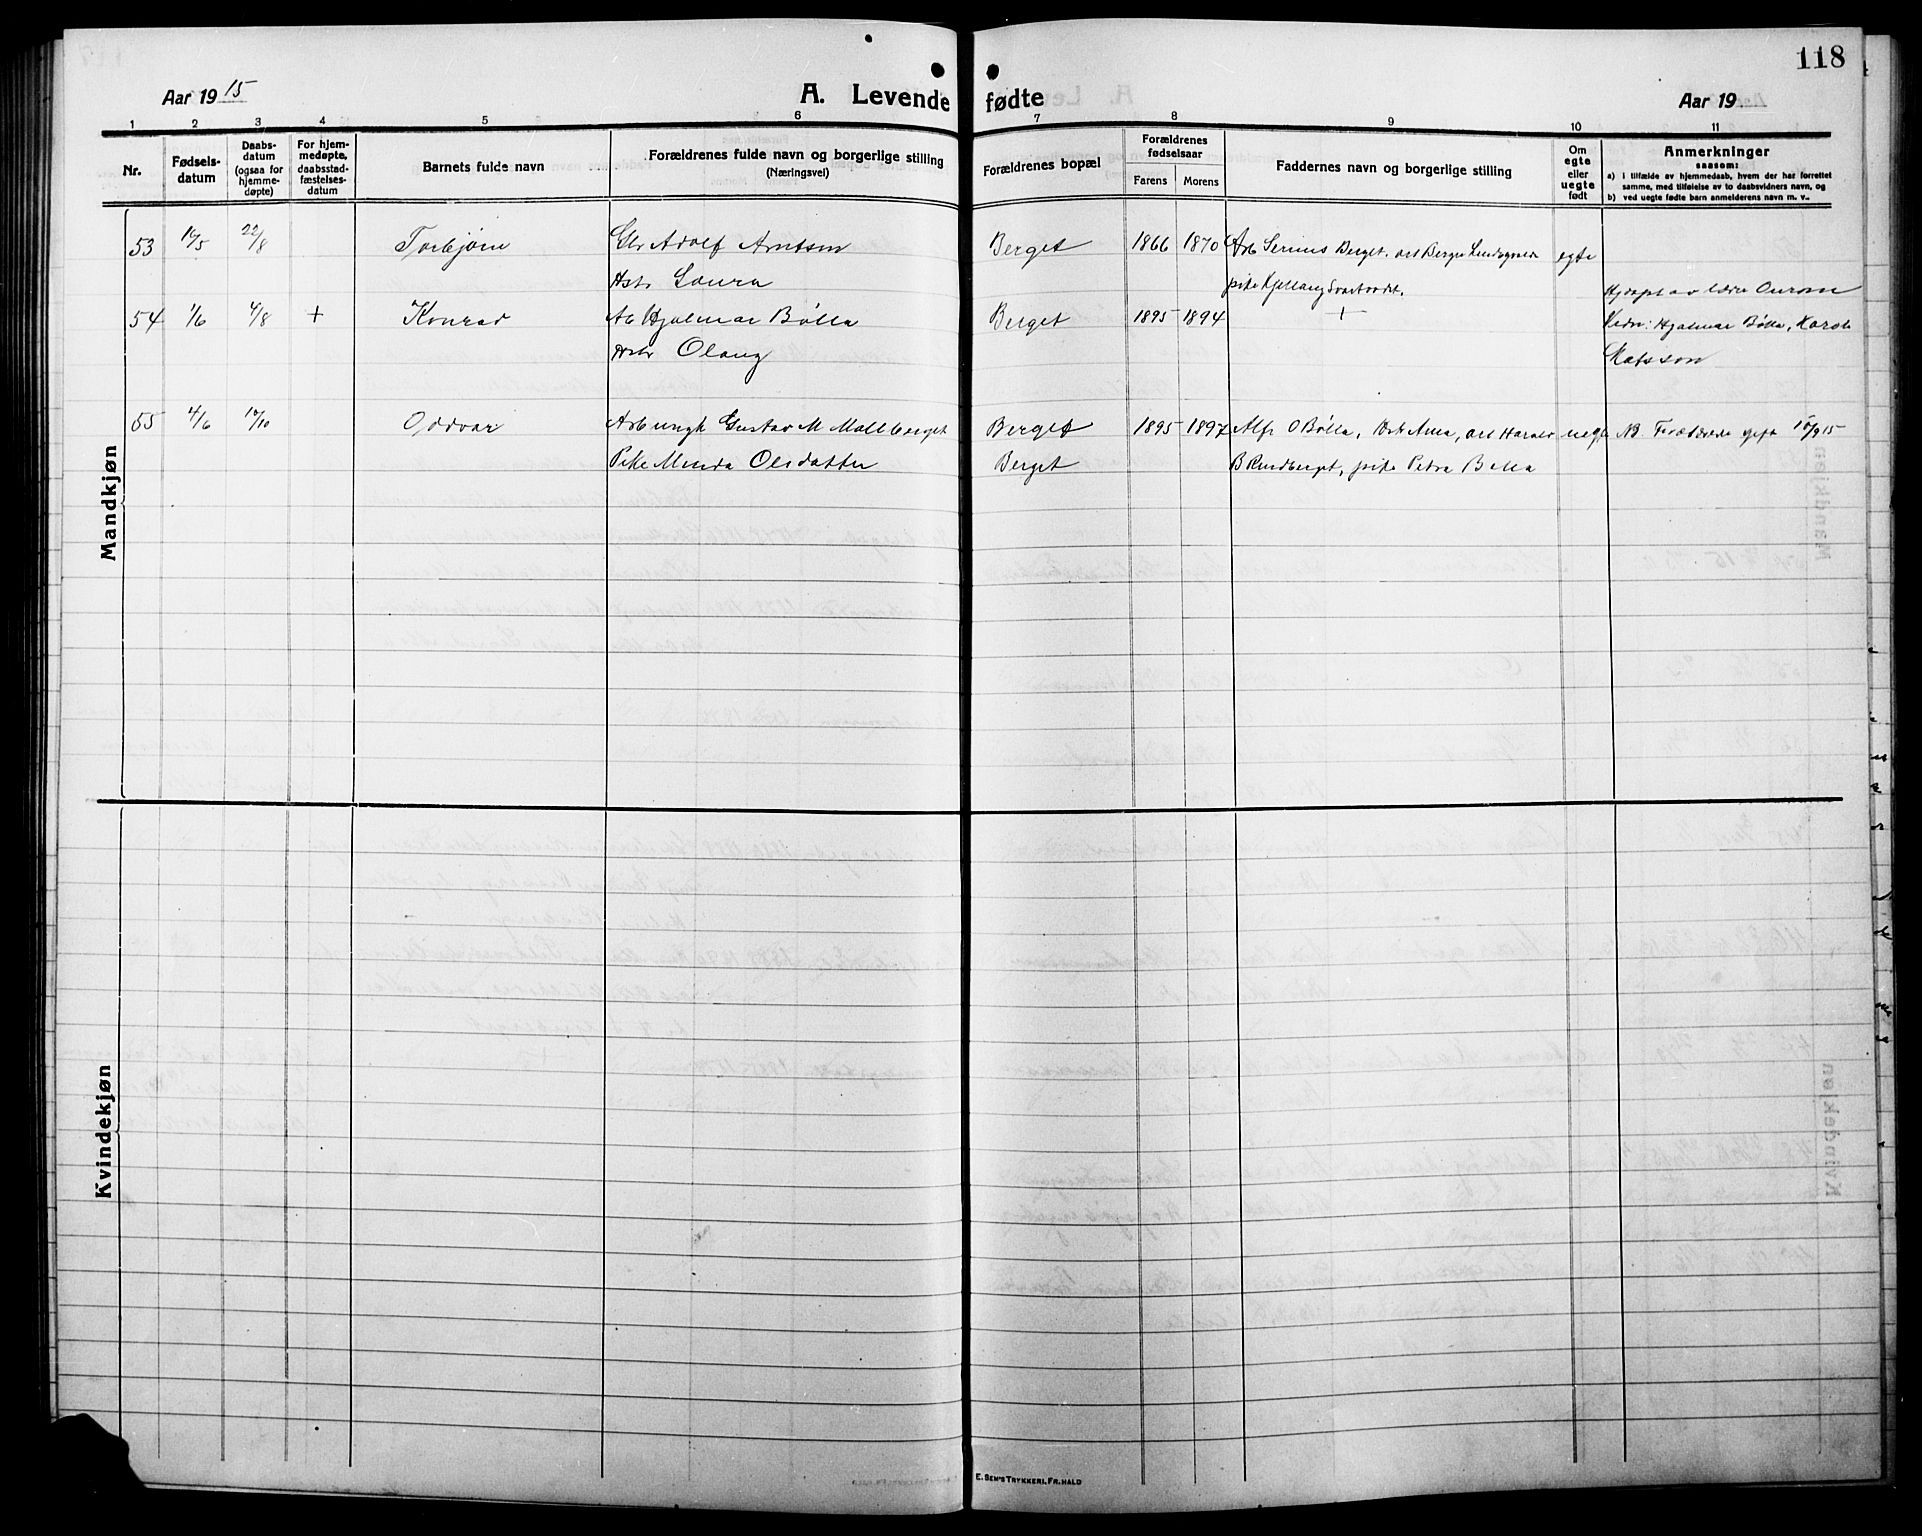 118
Aar 1915
A. Levende fødte
Aar 19
1 2 3 4 5 6 7 8 9 10 11
Nr.
Fødsels-
datum
Daabs-
datum
(ogsaa for
hjemme-
døpte)
For hjem-
medøpte,
daabsstad-
fæstelses-
datum
Barnets fulde navn
Forældrenes fulde navn og borgerlige stilling
(Næringsvei)
Forældrenes bopæl
Forældrenes
fødselsaar
Farens Morens
Faddernes navn og borgerlige stilling
Om
egte
eller
uegte
født
Anmerkninger
saasom:
a) i tilfælde av hjemmedaab, hvem der har forrettet
samme, med tilføielse av to daabsvidners navn, og
b) ved uegte fødte barn anmelderens navn m. v..
Mandkjøn
53 22/8 Torbjørn Adolf Arntsen Berget 1866 1870 Arb Serinus Berget. egte
Hstr Laura pike
54 1/6 /8 + Konrad Ab Hjalmar Bølla Berget 1895 1894 + Hjdøpt av lærer
Hstr Olaug Vidn: Hjalmar Bølla, Karoli
Matsson
55 4/6 /10 Oddvar Arb ungk Gustav M Mallberget Berget 1895 1897 Alfr O Bølla, Hst Anna, arb Harald uegte NB. Forældrene gift /9 15
Pike Minda Olsdatter Berget B Rundberget, pike Petra Bølla
Kvindekjøn
E. SEM'S TRYKKERI, FR.HALD